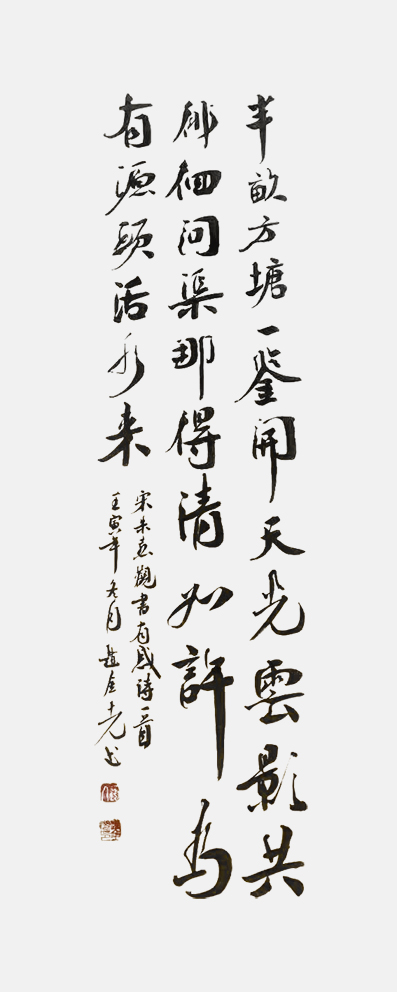 半畝方塘一鉴開天光雲影共
徘徊问渠那得清如許為
有源頭活水来
宋朱熹觀書有感诗一首
壬寅年冬月趙金光书